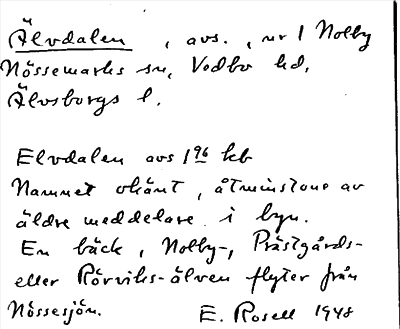 Älvdalen, avs., nr 1 Nolby
Nössemarks sn, Vedbo hd,
Älvsborgs l.
Elvdalen avs 1 96 kb
Namnet okänt, åtminstone av
äldre meddelare i byn.
En bäck, Nolby-, Prästgårds-
eller Rörviks-älven flyter från
Nössesjön. E. Rosell 1948